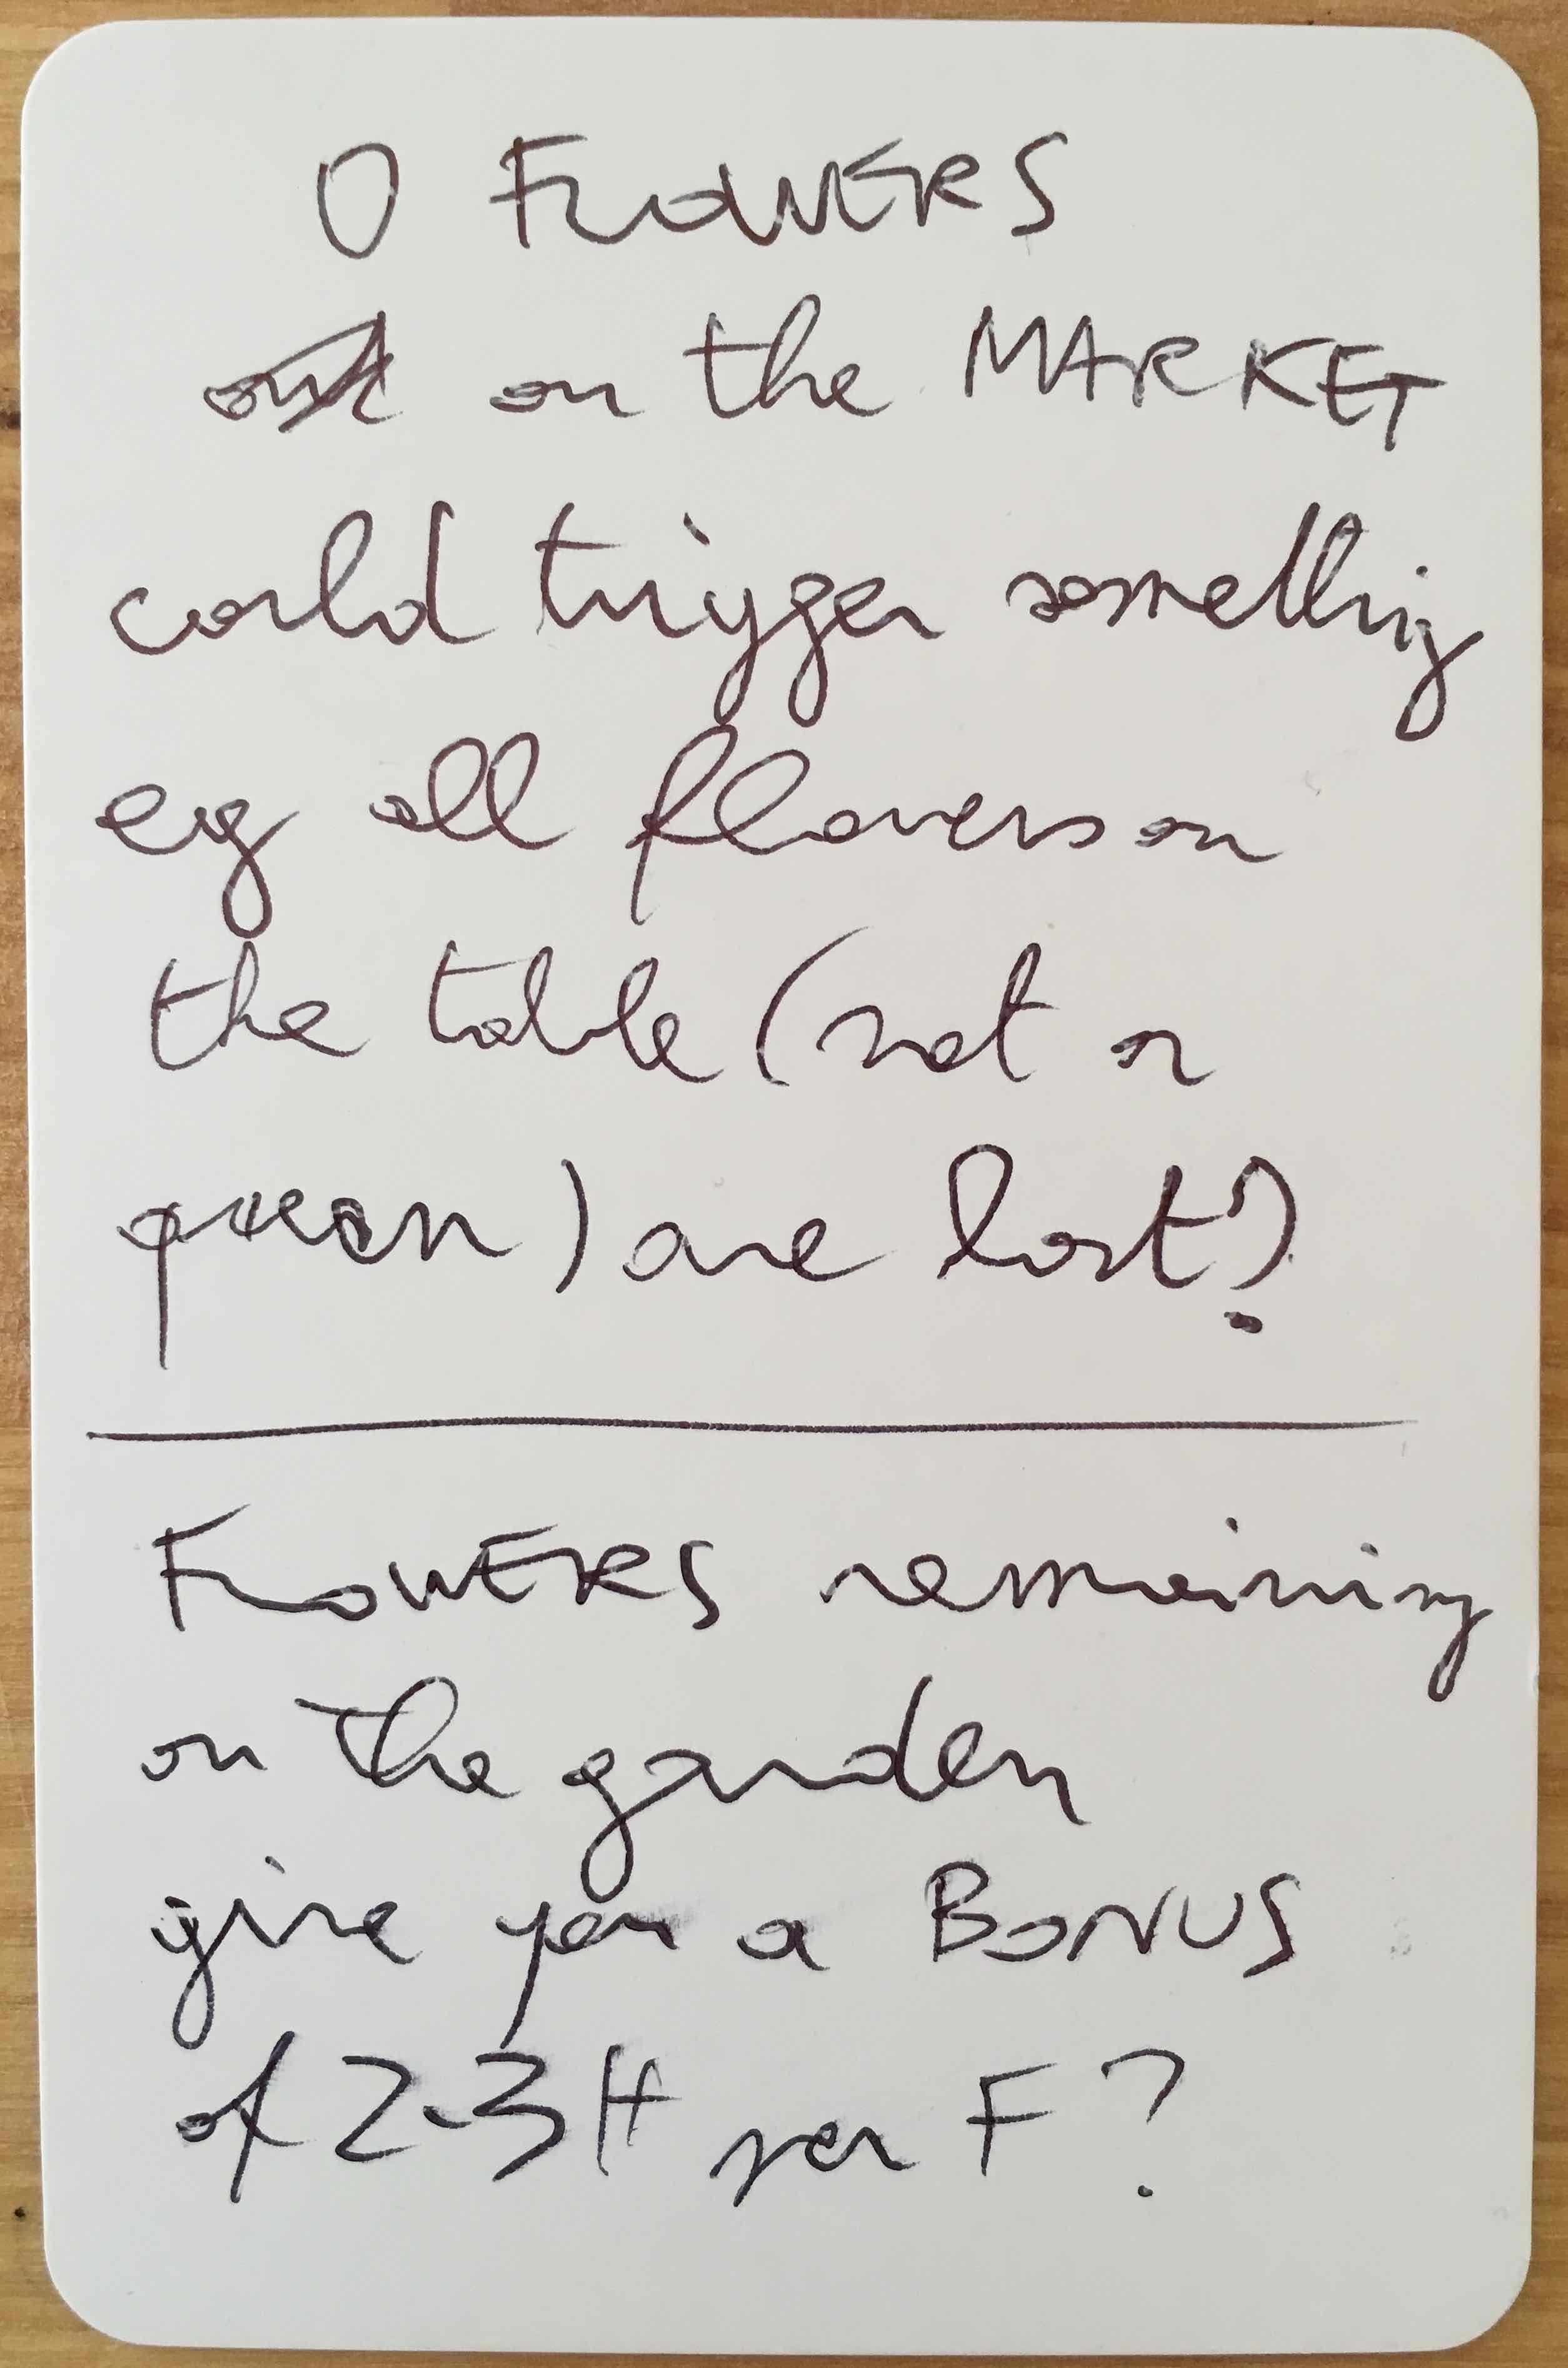 0 FLOWERS
on the MARKET
could trigger something
eg all flowers on
the table (not on
queen) are lost?
FLOWERS remaining
on the garden
give you a BONUS
of 2-3 H per F?